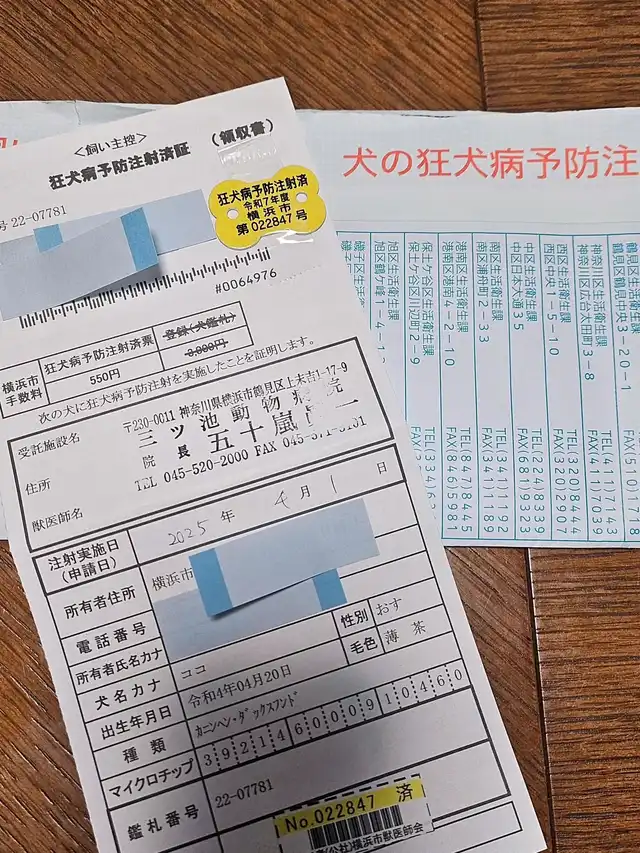 <飼い主控>
狂犬病予防注射済証
(領収書)
号 22-07781
狂犬病予防注射済
令和7年度
横浜市
第 022847 号
#0064976
横浜市
手数料
狂犬病予防注射済票
550円
登録(犬鑑札)
3,000円
次の犬に狂犬病予防注射を実施したことを証明します。
受託施設名
住所
獣医師名
〒230-0011 神奈川県横浜市鶴見区上末吉1-17-9
三ツ池動物病院
院長 五十嵐
TEL 045-520-2000 FAX 045-571-5151
注射実施日
(申請日)
2025 年 4 月 1 日
所有者住所
横浜市
電話番号
所有者氏名カナ
犬名カナ
ココ
性別
おす
出生年月日
令和4年04月20日
毛色
薄茶
種類
カニンヘン・ダックスフンド
マイクロチップ
392146000910460
鑑札番号
22-07781
No.022847 済
(公社)横浜市獣医師会
犬の狂犬病予防注
鶴見区生活衛生課
鶴見区鶴見中央3-20-1
TEL(510)1
神奈川区生活衛生課
神奈川区広台太田町3-8
TEL(411)7143
FAX(411)7039
西区生活衛生課
西区中央1-5-10
TEL(320)8444
FAX(320)2907
中区生活衛生課
中区日本大通35
TEL(224)8339
FAX(681)9323
南区生活衛生課
南区浦舟町2-33
TEL(341)1192
FAX(341)1189
港南区生活衛生課
港南区港南4-2-10
TEL(847)8445
FAX(846)5981
保土ケ谷区生活衛生課
保土ケ谷区川辺町2-9
TEL(334)6
旭区生活衛生課
旭区鶴ケ峰1-4-12
磯子区生活衛生課
磯子区